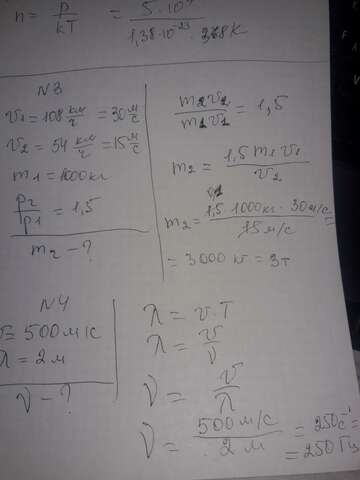 n = p/kT = 5·10/1,38·10⁻²³·
N3
v₁ = 108 км/ч = 30 м/с
v₂ = 54 км/ч = 15 м/с
m₁ = 1000 кг
p₂/p₁ = 1,5
m₂ - ?
m₂v₂/m₁v₁ = 1,5
m₂ = 1,5 m₁ v₁/v₂
m₂ = 1,5·1000 кг·30 м/с/15 м/с =
= 3000 кг = 3 т
N4
v = 500 м/с
λ = 2 м
ν - ?
λ = v·T
λ = v/ν
ν = v/λ
ν = 500 м/с/2 м = 250 с⁻¹ =
= 250 Гц